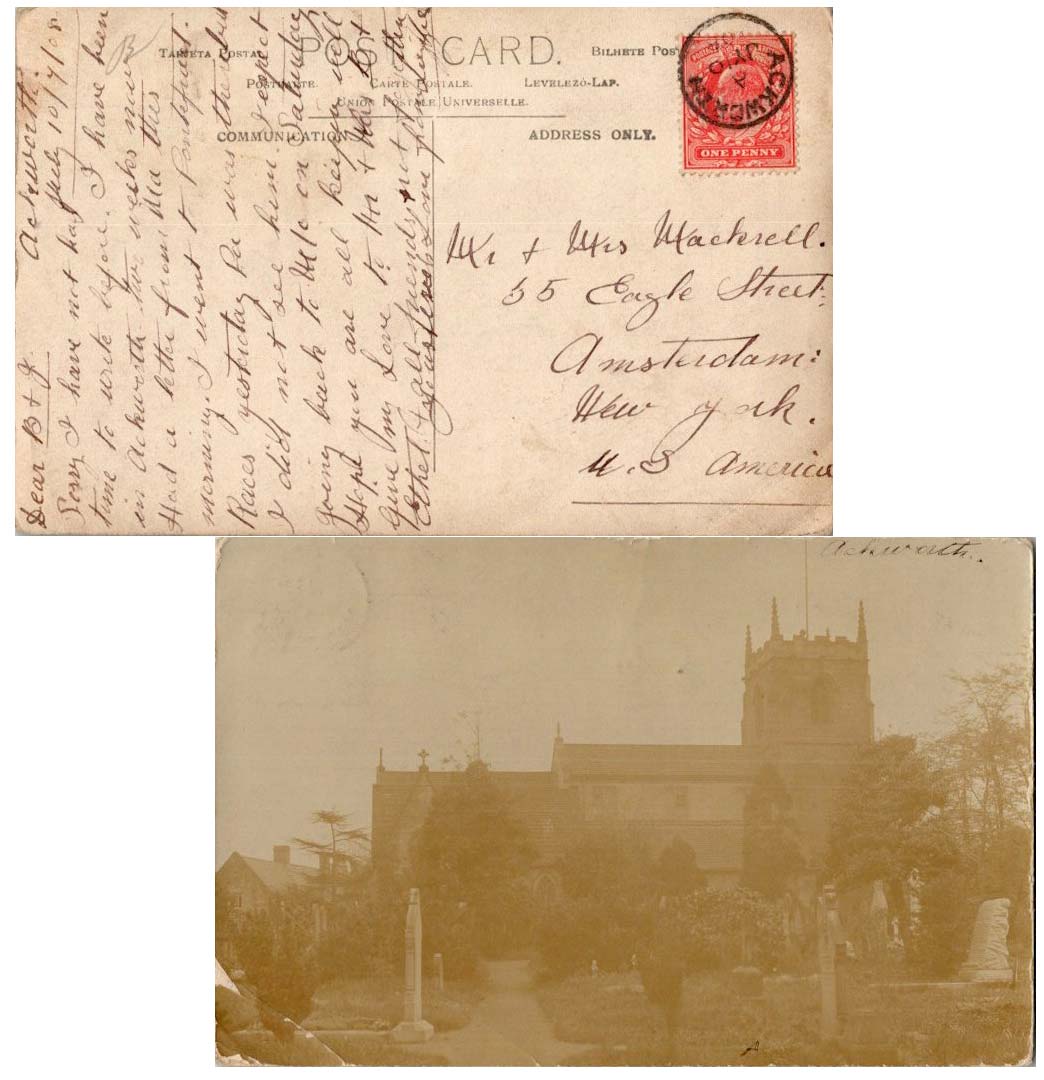 TARJETA POSTAL
POST CARD.
BILHETE POS
POSTKARTE.
CARTE POSTALE.
LEVELEZÖ-LAP.
UNION POSTALE UNIVERSELLE.
COMMUNICATION.
ADDRESS ONLY.
B
ACKWORTH
JY 10
ONE PENNY
Mr + Mrs Mackrell.
55 Eagle Street.
Amsterdam:
New York.
U.S America
Ackworth.
July 10/7/08.
Dear B + J.
Sorry I have not had
time to write before. I have been
in Ackworth two weeks now
Had a letter from Ma this
morning. I went to Pontefract.
Races yesterday Pa was there but
I did not see him. I expect
Going back to M/c on Saturday
Hope you are all keeping well
Give my Love to Mr + Mrs B +
Ethel. + all friends, not
Ackworth.